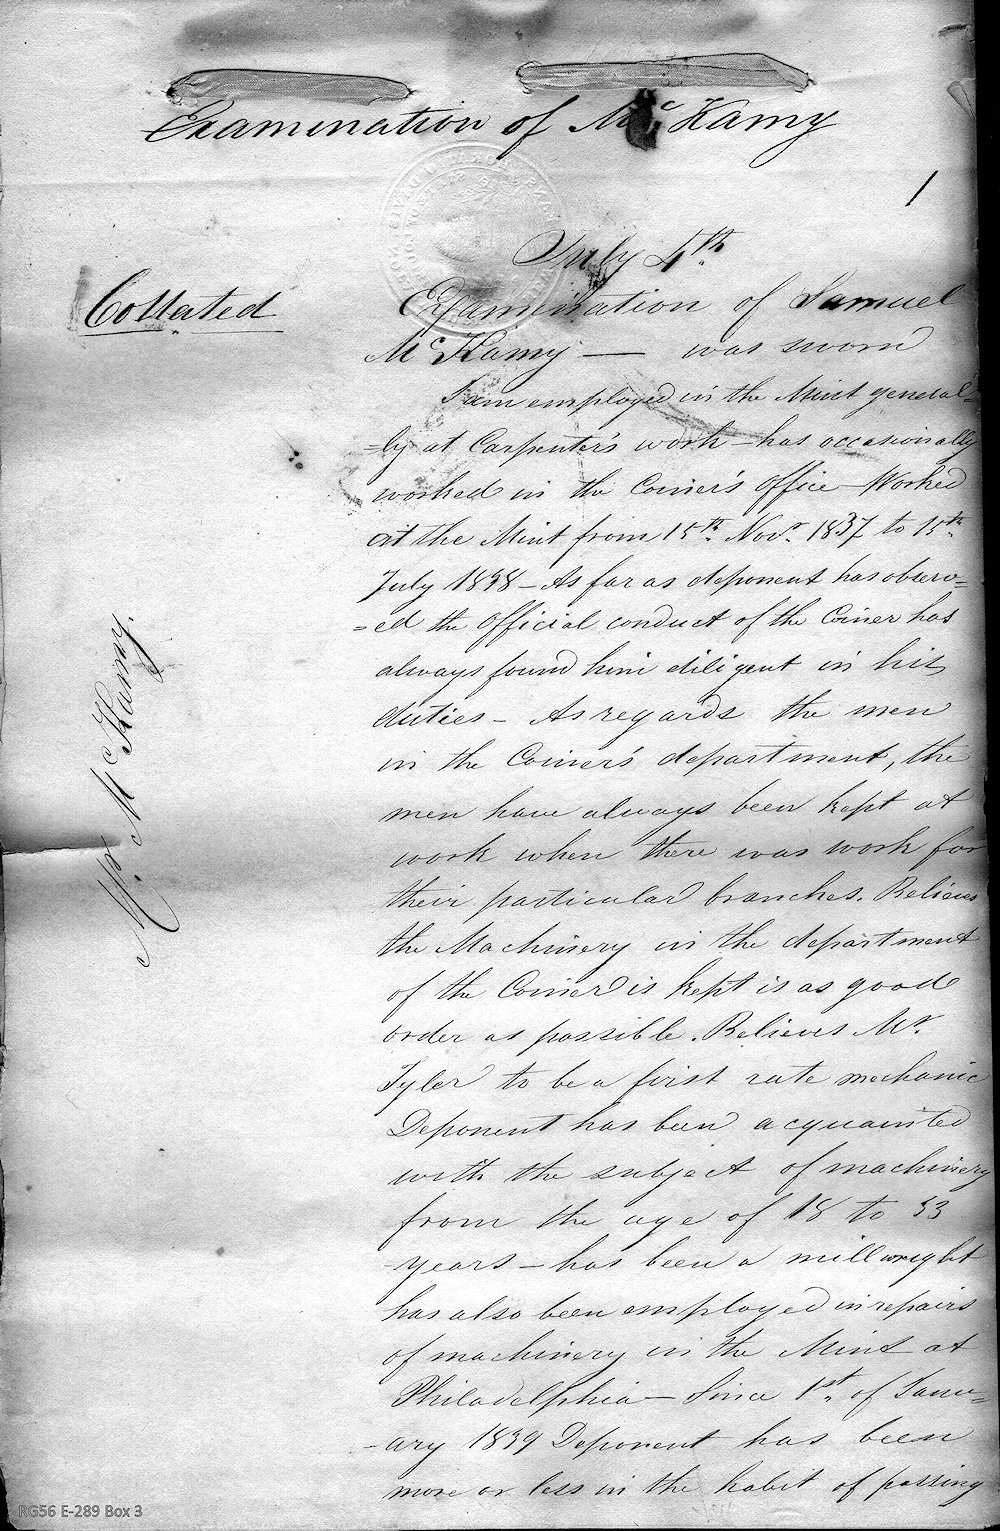 Examination of Mc Kamy
1
July 4th.
Collated
Examination of Samuel
Mc Kamy — was sworn
I am employed in the Mint general=
=ly at Carpenter's work — has occasionally
worked in the Coiner's office — Worked
at the Mint from 15th. Novr. 1837 to 15th.
July 1838 — As far as deponent has observ=
=ed the official conduct of the Coiner has
always found him diligent in his
duties — As regards the men
in the Coiner's department, the
men have always been kept at
work when there was work for
their particular branches. Believes
the Machinery in the department
of the Coiner is kept is as good
order as possible. Believes Mr.
Tyler to be a first rate mechanic
Deponent has been acquainted
with the subject of machinery
from the age of 18 to 53
years — has been a millwright
has also been employed in repairs
of machinery in the Mint at
Philadelphia — Since 1st. of Janu=
-ary 1839 Deponent has been
more or less in the habit of passing
Mr. Mc Kamy.
RG56 E-289 Box 3